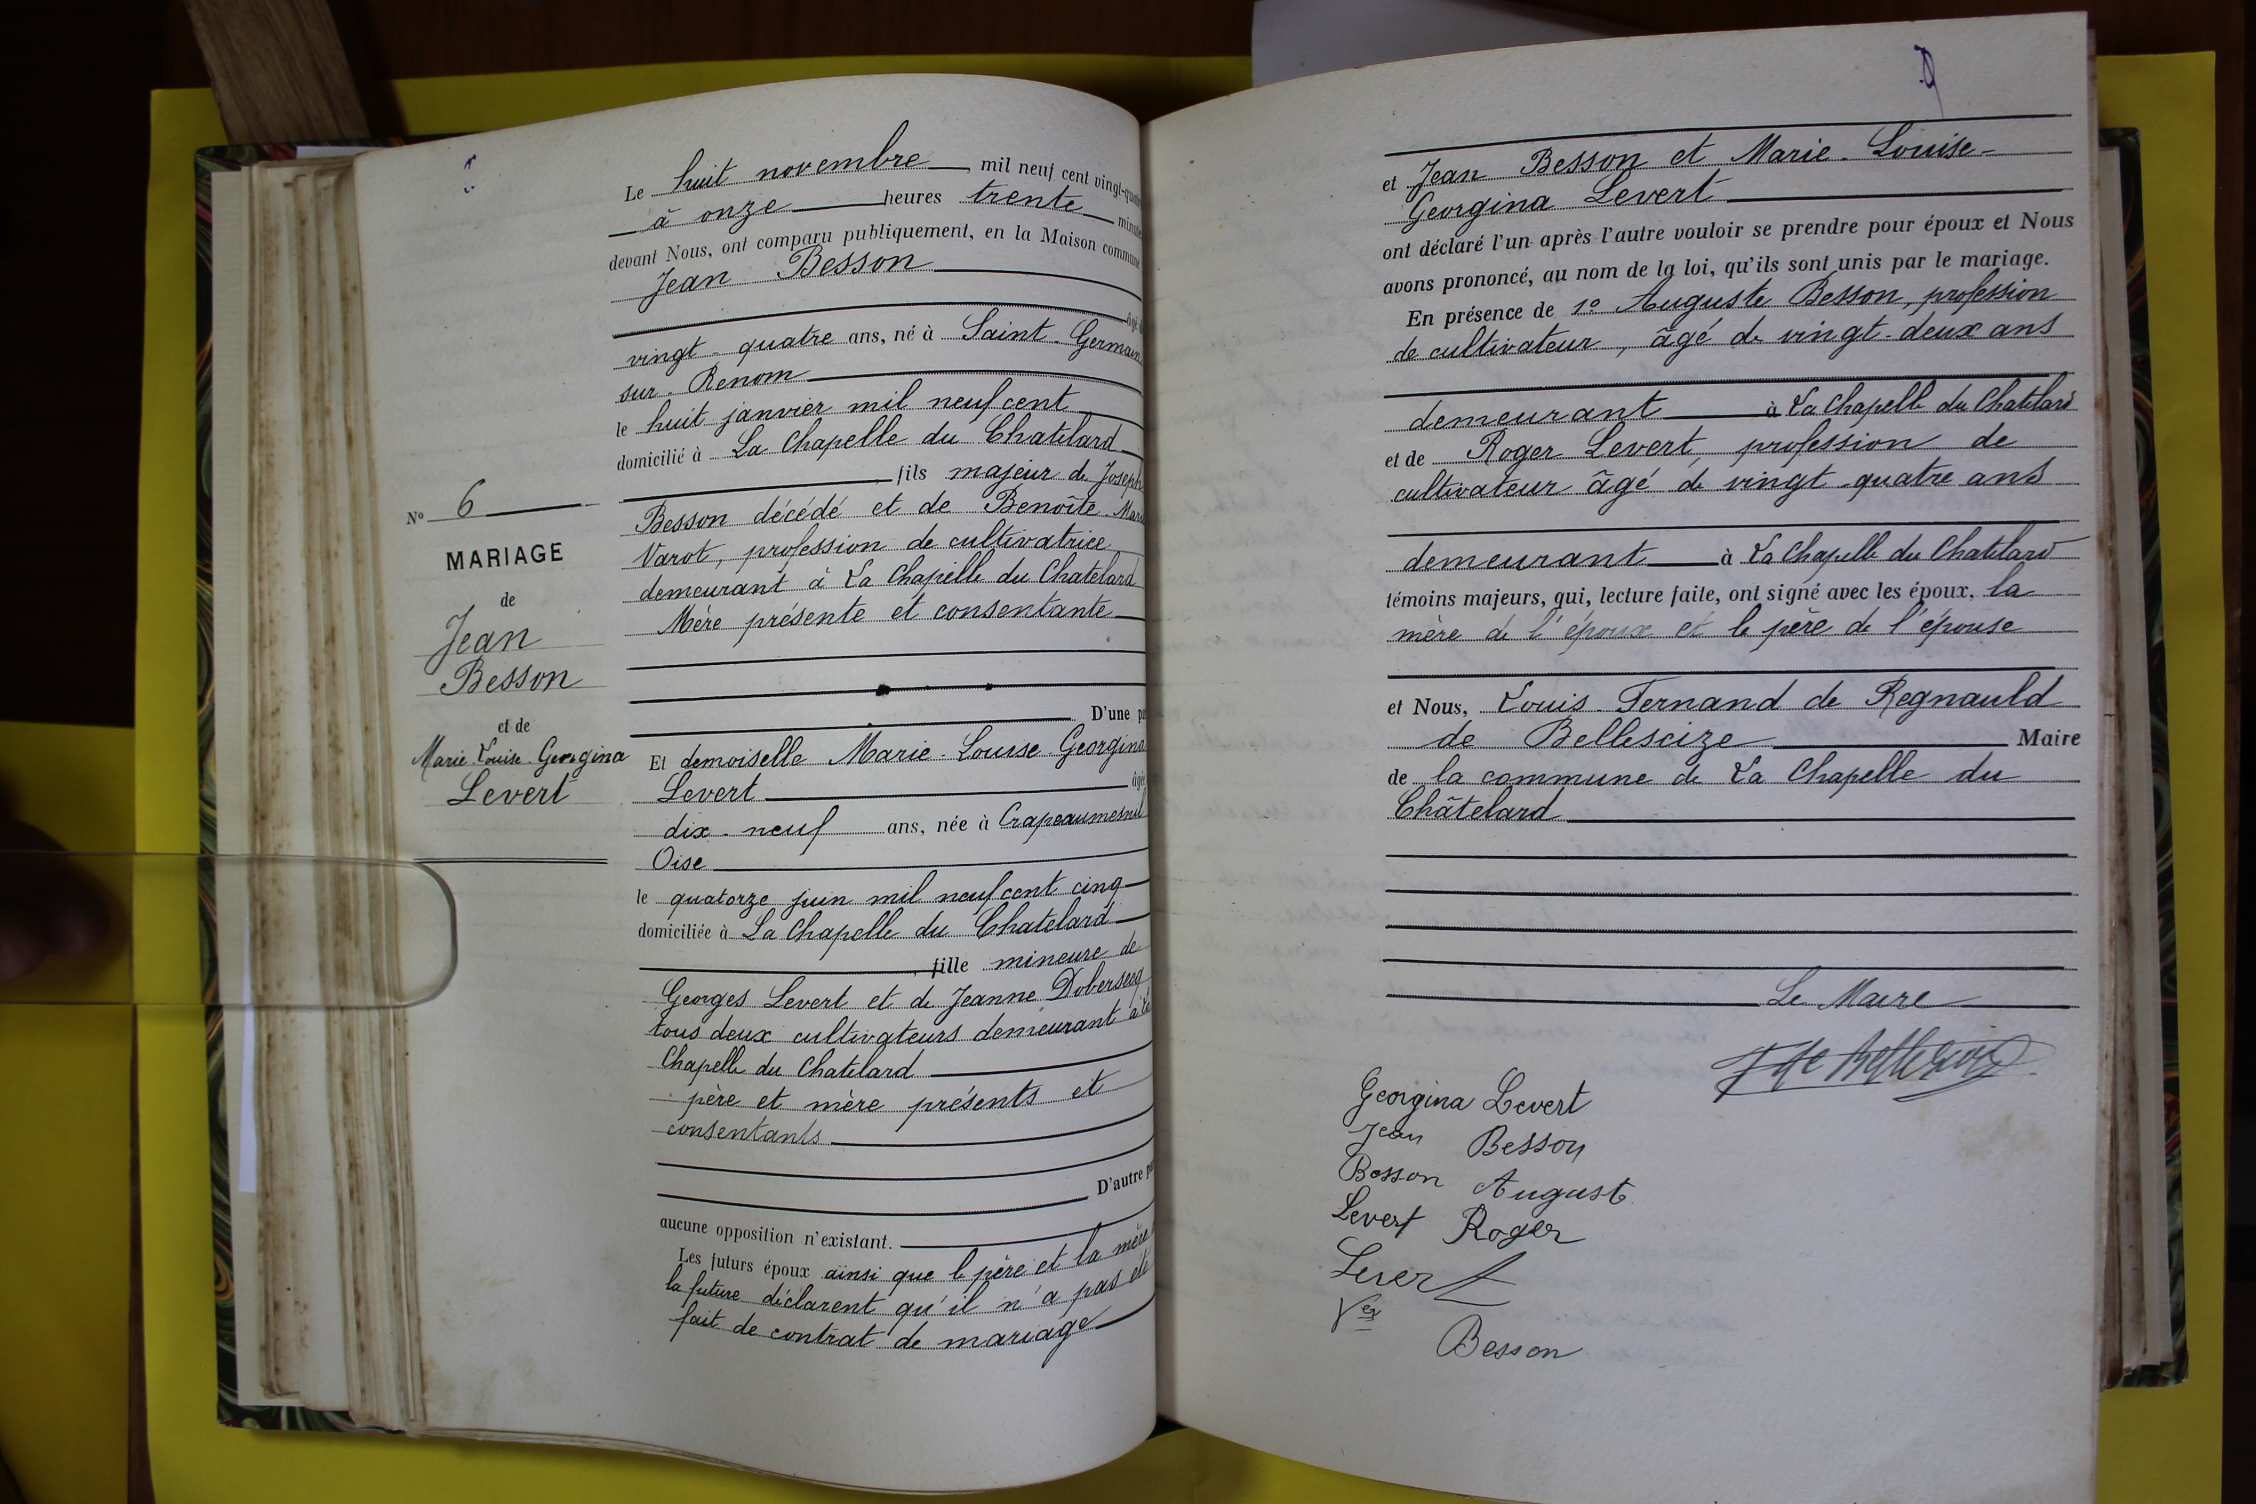 N° 6
MARIAGE
de
Jean
Besson
et de
Marie-Louise-Georgina
Levert
Le huit novembre mil neuf cent vingt-quatre
à onze heures trente minutes
devant Nous, ont comparu publiquement, en la Maison commune
Jean Besson
âgé
vingt-quatre ans, né à Saint-Germain
sur-Renom
le huit janvier mil neuf cent
domicilié à La Chapelle du Chatelard
fils majeur de Joseph
Besson décédé et de Benoîte-Marie
Varot, profession de cultivatrice
demeurant à La Chapelle du Chatelard
Mère présente et consentante
D'une pa
Et demoiselle Marie-Louise-Georgina
Levert âgé
dix-neuf ans, née à Crapeaumesnil
Oise
le quatorze juin mil neuf cent cinq
domiciliée à La Chapelle du Chatelard
fille mineure de
Georges Levert et de Jeanne Dobersecq
tous deux cultivateurs demeurant à la
Chapelle du Chatelard
père et mère présents et
consentants
D'autre pa
aucune opposition n'existant.
Les futurs époux ainsi que le père et la mère
la future déclarent qu'il n'a pas été
fait de contrat de mariage
et Jean Besson et Marie-Louise-
Georgina Levert
ont déclaré l'un après l'autre vouloir se prendre pour époux et Nous
avons prononcé, au nom de la loi, qu'ils sont unis par le mariage.
En présence de 1° Auguste Besson, profession
de cultivateur, âgé de vingt-deux ans
demeurant à La Chapelle du Chatelard
et de Roger Levert, profession de
cultivateur âgé de vingt-quatre ans
demeurant à La Chapelle du Chatelard
témoins majeurs, qui, lecture faite, ont signé avec les époux, la
mère de l'époux et le père de l'épouse
et Nous, Louis-Fernand de Regnauld
de Bellescize Maire
de la commune de La Chapelle du
Châtelard
Le Maire
F de Bellescize
Georgina Levert
Jean Besson
Besson August
Levert Roger
Levert
Vve
Besson